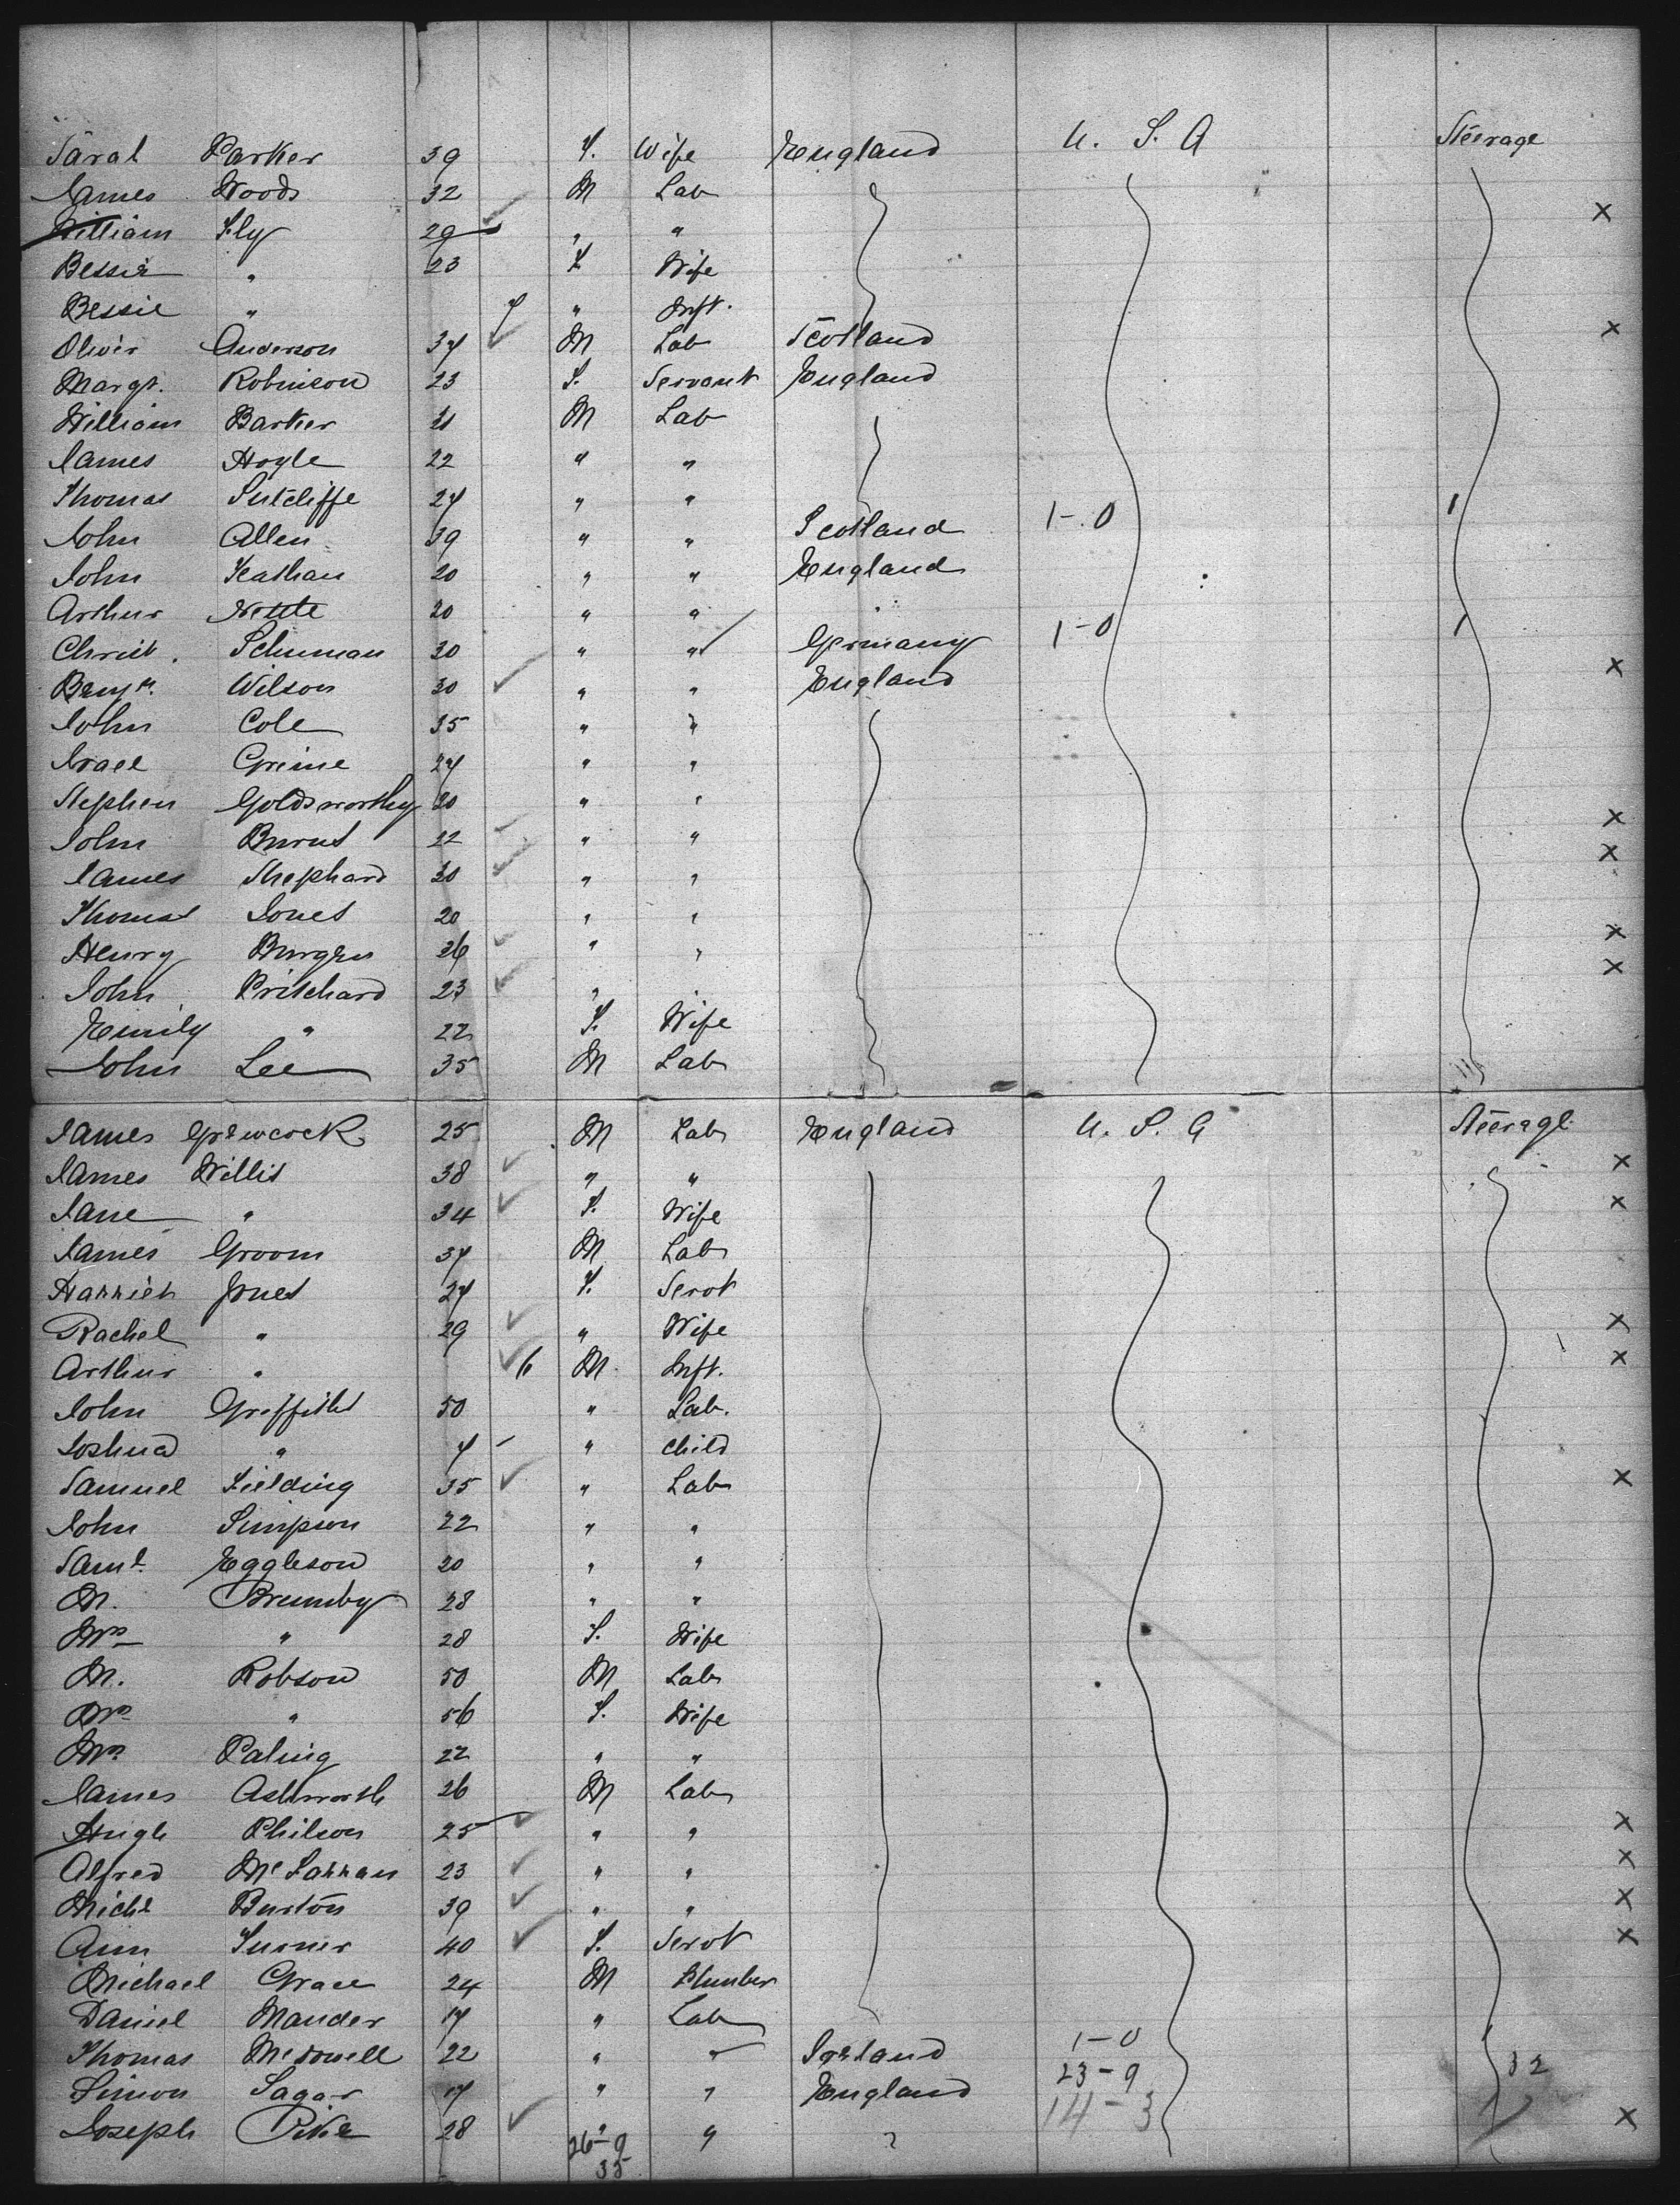 Sarah Parker 39 F. Wife England U. S. A Steerage
James Woods 32 M Lab
William Fly 29 " " x
Bessie " 23 F Wife
Bessie " 7 " Inft.
Oliver Anderson 37 M Lab Scotland x
Margt. Robinson 23 F. Servant England
William Barker 21 M Lab
James Hoyle 22 " "
Thomas Sutcliffe 27 " "
John Allen 39 " " Scotland 1-0 1
John Keathan 20 " " England
Arthur Nettle 20 " " "
Christ. Schuman 30 " " Germany 1-0 1
Benjn. Wilson 30 " " England x
John Cole 35 " "
Israel Grime 27 " "
Stephen Goldsworthy 20 " "
John Burns 22 " " x
James Shephard 30 " " x
Thomas Jones 20 " "
Henry Burgess 26 " " x
John Pritchard 23 " " x
Emily " 22 F. Wife
John Lee 35 M Lab
James Grewcock 25 M Lab England U. S. A Steerage
James Willis 38 " " x
Jane " 34 F. Wife x
James Groom 37 M Lab
Harriet Jones 27 F. Servt
Rachel " 29 " Wife x
Arthur " 6 M Inft. x
John Griffiths 50 " Lab.
Joshua " 7 - " Child
Samuel Fielding 35 " Lab x
John Simpson 22 " "
Saml. Eggleson 20 " "
M. Brumby 28 " "
Mrs " 28 F. Wife
M. Robson 50 M Lab
Mrs " 56 F. Wife
Mrs Paling 22 " "
James Ashworth 26 M Lab
Hugh Philson 25 " " x
Alfred McFarran 23 " " x
Michl Burton 39 " " x
Ann Turner 40 F. Servt x
Michael Grace 24 M Plumber
Daniel Mander 17 " Lab
Thomas McDowell 22 " " Ireland 1-0
Simon Sagar 17 " " England 23-9 32
Joseph Pike 28 " " " 14-3 x
26-9
35